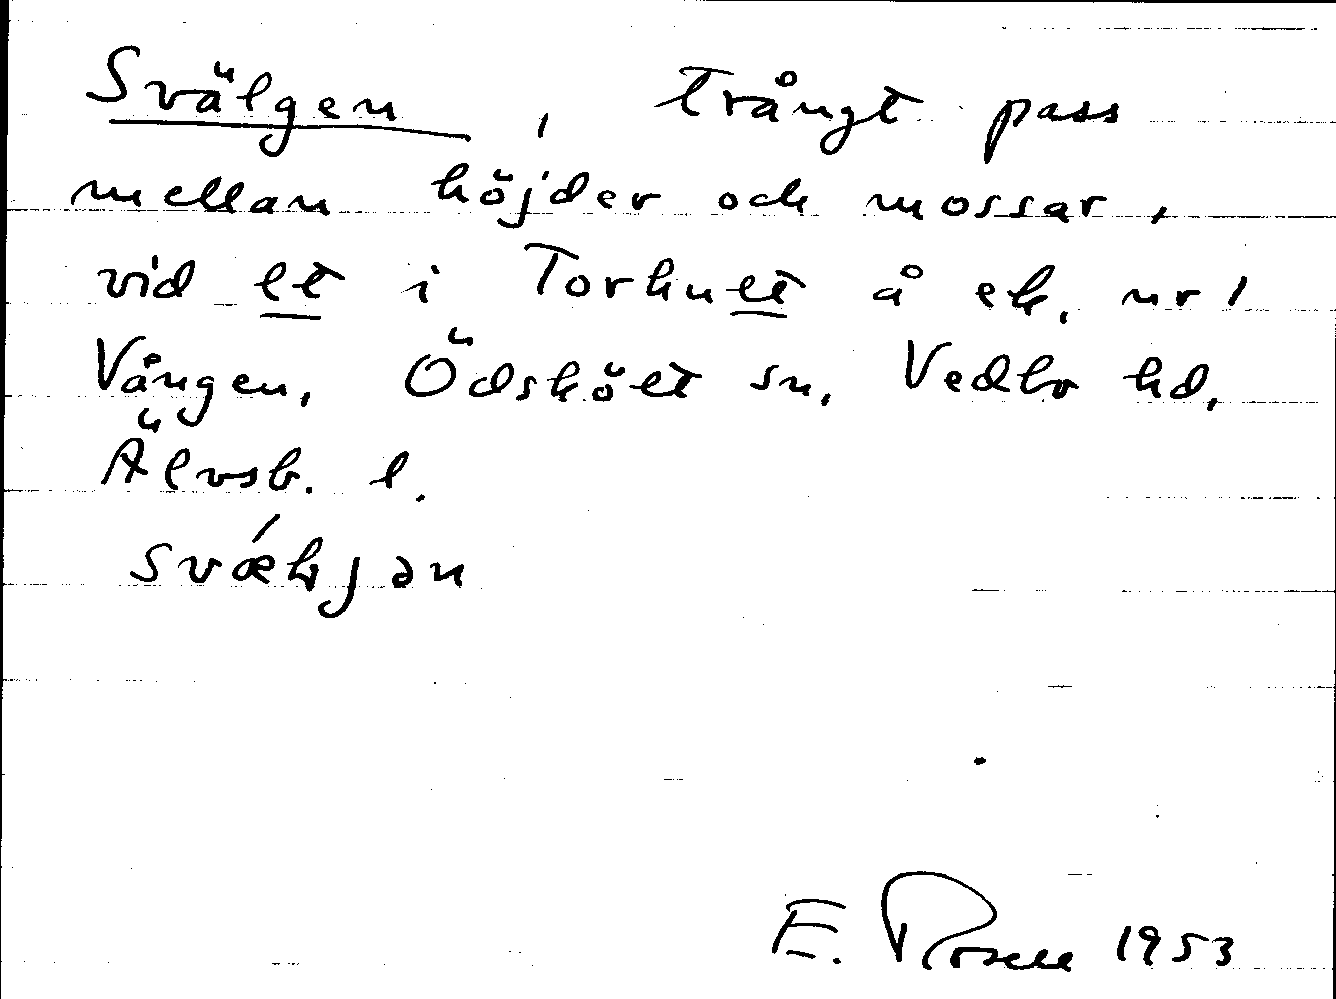 Svälgen, trångt pass
mellan höjder och mossar,
vid et i Torhuet å ek. nr 1
Vången, Ödsköet sn, Vedbo hd,
Älvsb. l.
E. Rosell 1953